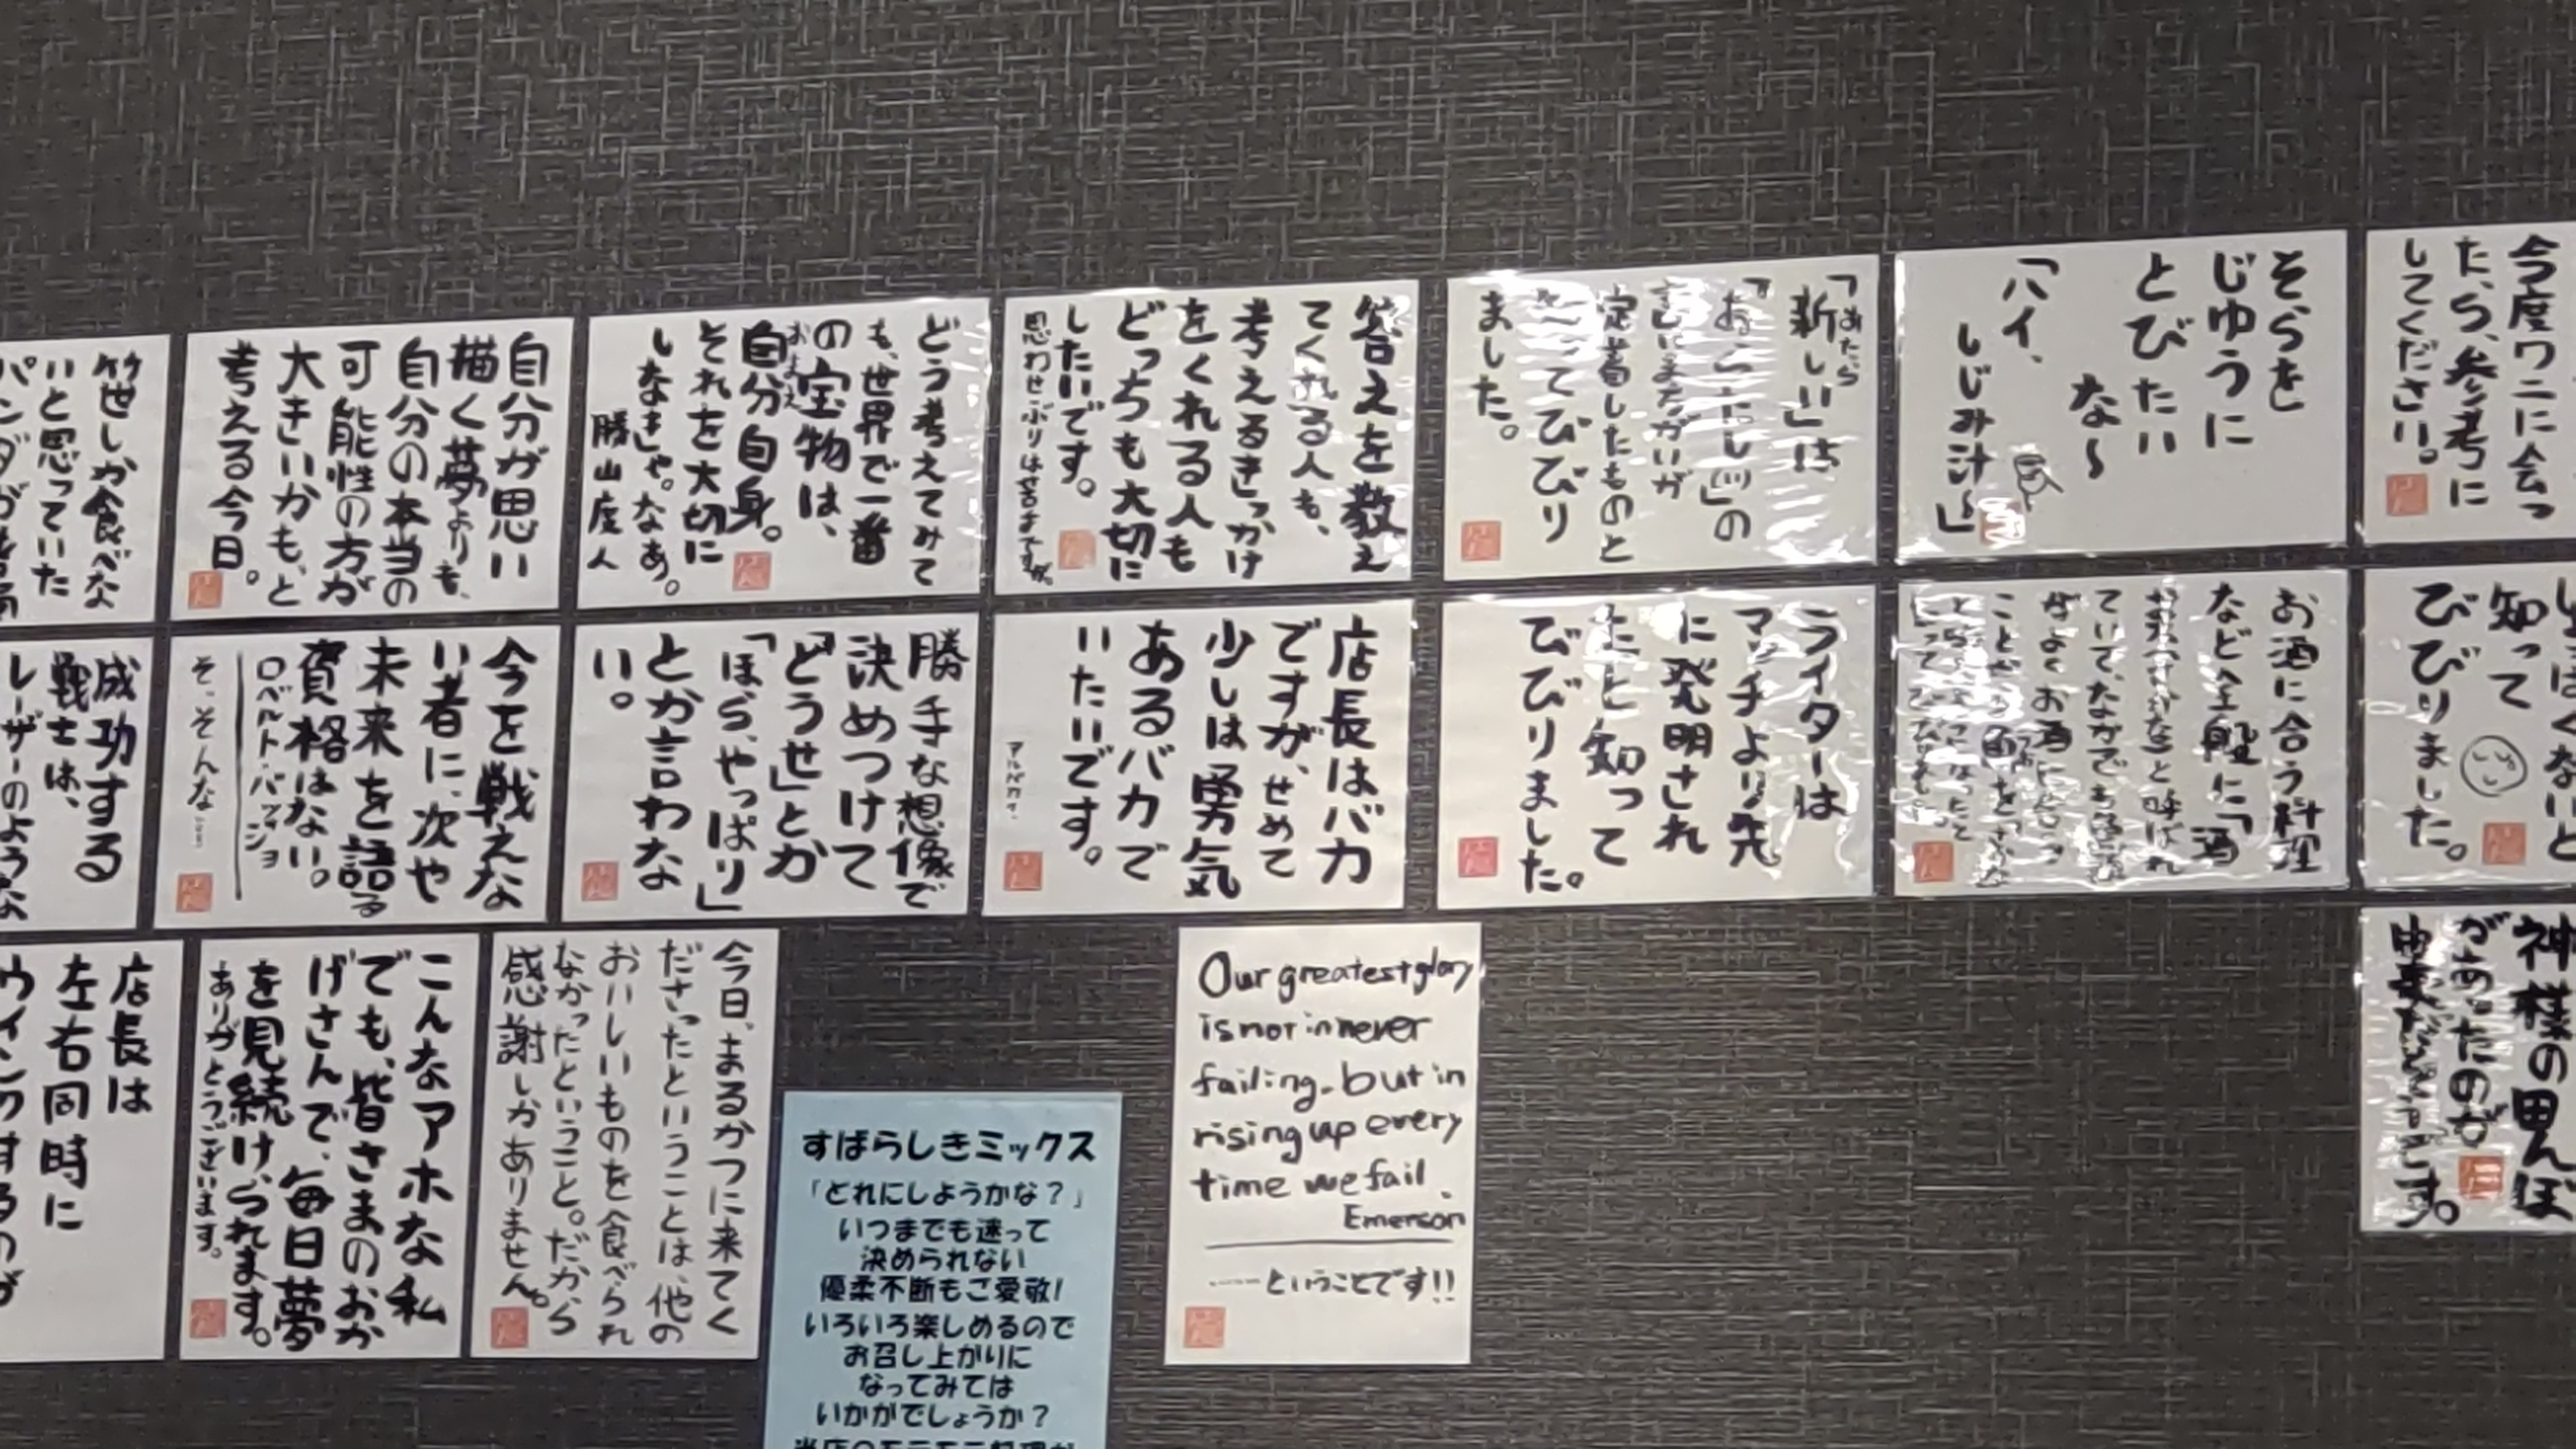 今度ワニに会っ
たら、参考に
してください。
そらを
じゆうに
とびたい
な〜
「ハイ、
しじみ汁〜」
あたら
「新しい」は
「あらたし」の
言いまちがいが
定着したものと
知ってびびり
ました。
答えを教え
てくれる人も、
考えるきっかけ
をくれる人も
どっちも大切に
したいです。
思わせぶりは苦手ですが。
どう考えてみて
も、世界で一番
の宝物は、
およえ
自分自身。
それを大切に
しなきゃ。なあ。
勝山度人
自分が思い
描く夢よりも、
自分の本当の
可能性の方が
大きいかも、と
考える今日。
笹しか食べな
いと思っていた
知って
びびりました。
お酒に合う料理
など全般に「酒
ライターは
マッチより先
に発明され
たと知って
びびりました。
店長はバカ
ですが、せめて
少しは勇気
あるバカで
いたいです。
アルバカイ。
勝手な想像で
決めつけて
「どうせ」とか
「ほら、やっぱり」
とか言わな
い。
今を戦えな
い者に、次や
未来を語る
資格はない。
ロベルト・バッジョ
そ、そんな……
成功する
戦士は、
レーザーのような
神様の田んぼ
があったのが
Our greatest glory
is not in never
failing, but in
rising up every
time we fail.
Emerson
……ということです!!
今日、まるかつに来てく
ださったということは、他の
おいしいものを食べられ
なかったということ。だから
感謝しかありません。
こんなアホな私
でも、皆さまのおか
げさんで、毎日夢
を見続けられます。
ありがとうございます。
店長は
左右同時に
ウインクするのが
すばらしきミックス
「どれにしようかな？」
いつまでも迷って
決められない
優柔不断もご愛敬！
いろいろ楽しめるので
お召し上がりに
なってみては
いかがでしょうか？